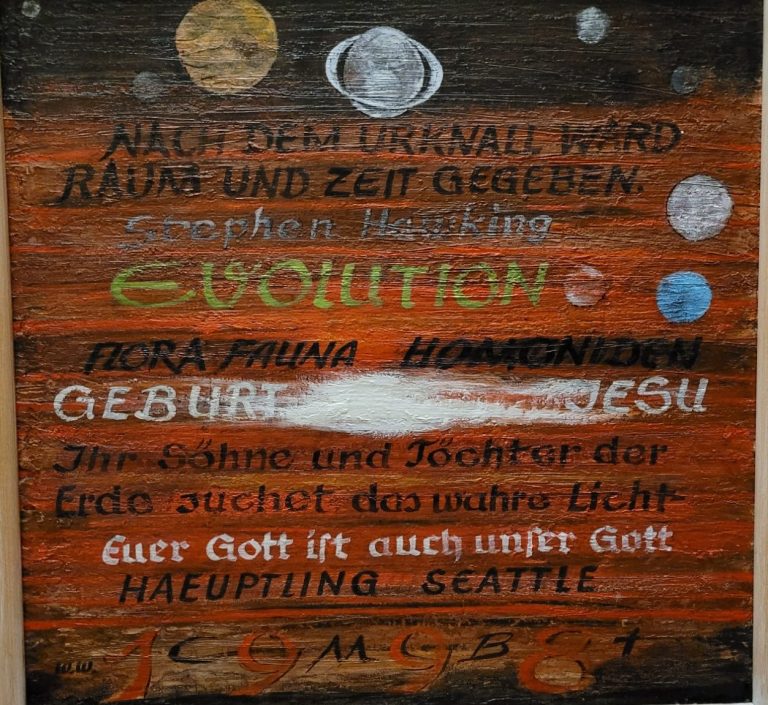 NACH DEM URKNALL WARD
RAUM UND ZEIT GEGEBEN.
Stephen Hawking
EVOLUTION
FLORA FAUNA HOMONIDEN
GEBURT JESU
Ihr Söhne und Töchter der
Erde suchet das wahre Licht-
Euer Gott ist auch unser Gott
HAEUPTLING SEATTLE
W.W. 1C9M9B8+